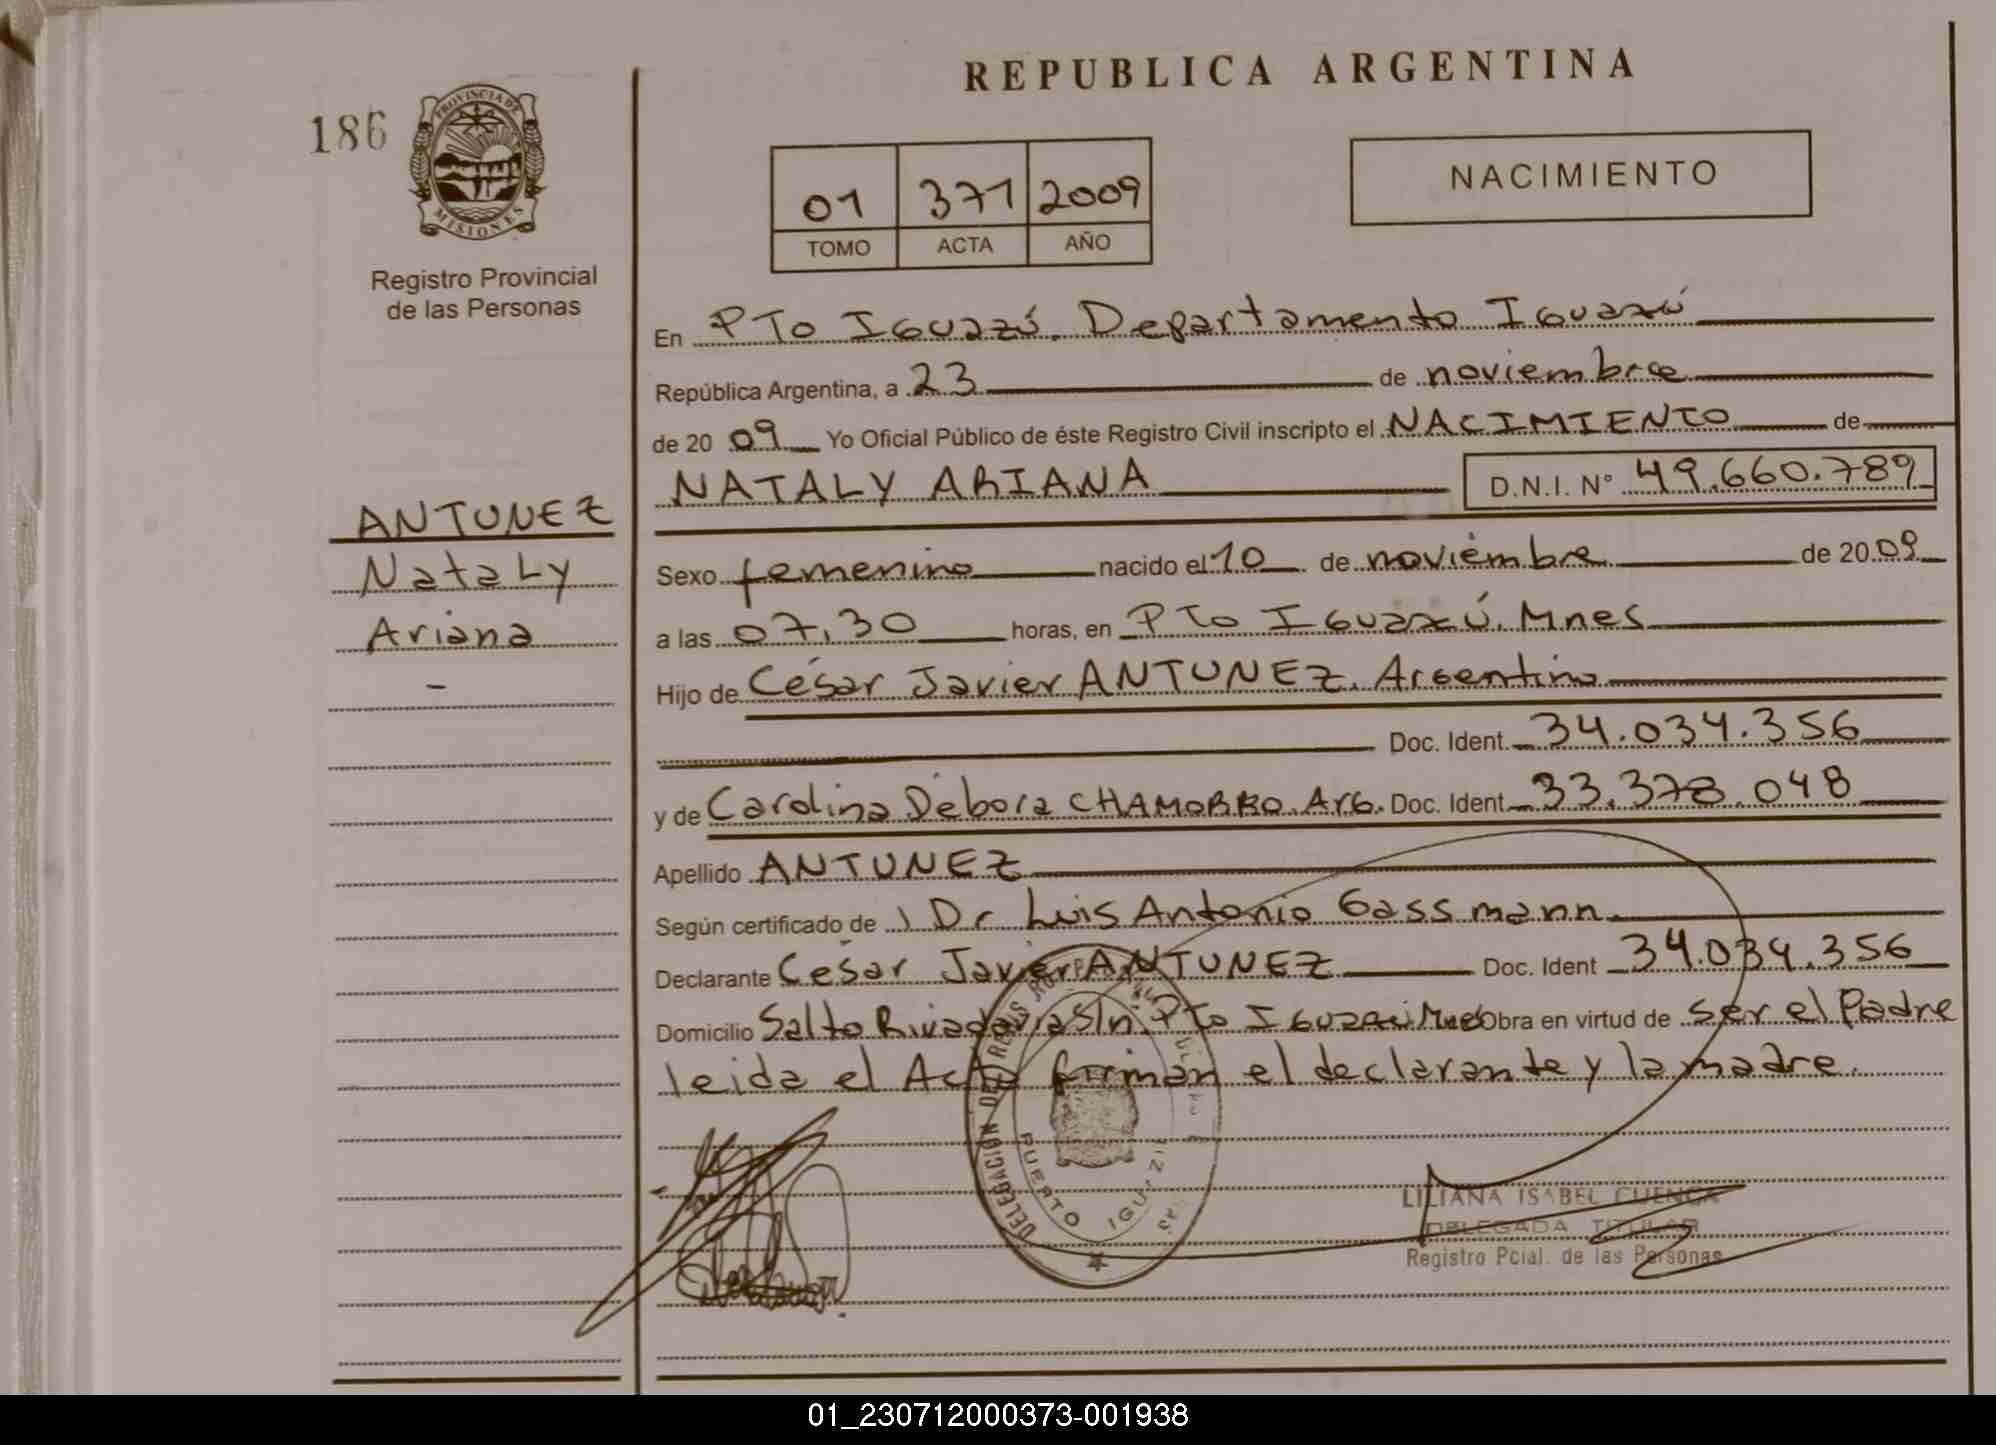 REPUBLICA ARGENTINA
186
PROVINCIA DE
MISIONES
Registro Provincial
de las Personas
01 371 2009
TOMO ACTA AÑO
NACIMIENTO
En PTo IGUAZÚ. Departamento IGUAZÚ
República Argentina, a 23 de noviembre
de 20 09 Yo Oficial Público de éste Registro Civil inscripto el NACIMIENTO de
NATALY ARIANA D.N.I. N° 49.660.789
ANTUNEZ
NataLy
Ariana
-
Sexo femenino nacido el 10 de noviembre de 20 09
a las 07,30 horas, en PTo IGUAZÚ. Mnes
Hijo de César Javier ANTUNEZ. Argentino
Doc. Ident. 34.034.356
y de Carolina Débora CHAMORRO. Arg. Doc. Ident 33.378.048
Apellido ANTUNEZ
Según certificado de Dr Luis Antonio Gassmann
Declarante César Javier ANTUNEZ Doc. Ident 34.034.356
Domicilio Salto Rivadavia S/n. PTo IGUAZÚ Obra en virtud de ser el Padre
leida el Acta firman el declarante y la madre.
DELEGACIÓN DEL
PUERTO IGUAZÚ
LILIANA ISABEL CUENCA
DELEGADA TITULAR
Registro Pcial. de las Personas
01_230712000373-001938